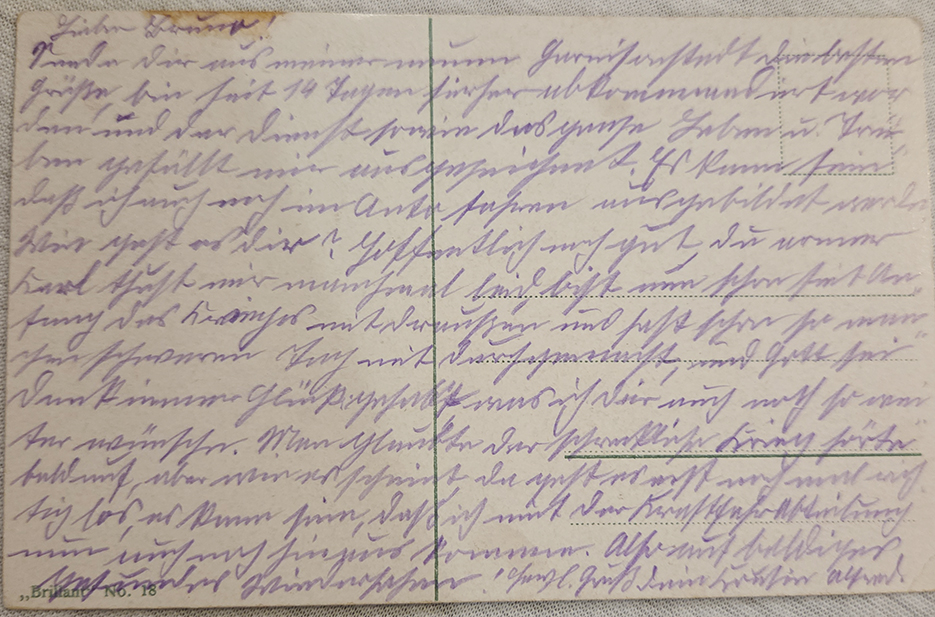 Lieber Bruno!
Sende dir aus meiner neuen Garnisonstadt die besten
Grüße, bin seit 14 Tagen hierher abkommandirt wor
den und der Dienst sowie das ganze Leben u. Trei
ben gefällt mir ausgezeichnet. Es kann sein
daß ich auch noch im Auto fahren ausgebildet werde
Wie geht es dir? Hoffentlich noch gut, du armer
Karl thust mir manchmal leid bist nun schon seit An„
fang des Krieges mit draußen und hast schon so man„
chen schweren Tach mit durchgemacht, und Gott sei
dank immer Glük gehabt was ich dir auch noch so wei
ter wünsche. Man glaubte der schrekliche Krieg hörte
bald auf, aber wie es scheint da geht es erst noch mal rich
tig los, es kann sein, daß ich mit der Kraftfahrabteilung
nun auch noch hinaus komme. Also auf baldiges
gesundes Wiedersehen! Gruß dein Cousin Alfred.
„Brillant" No. 18